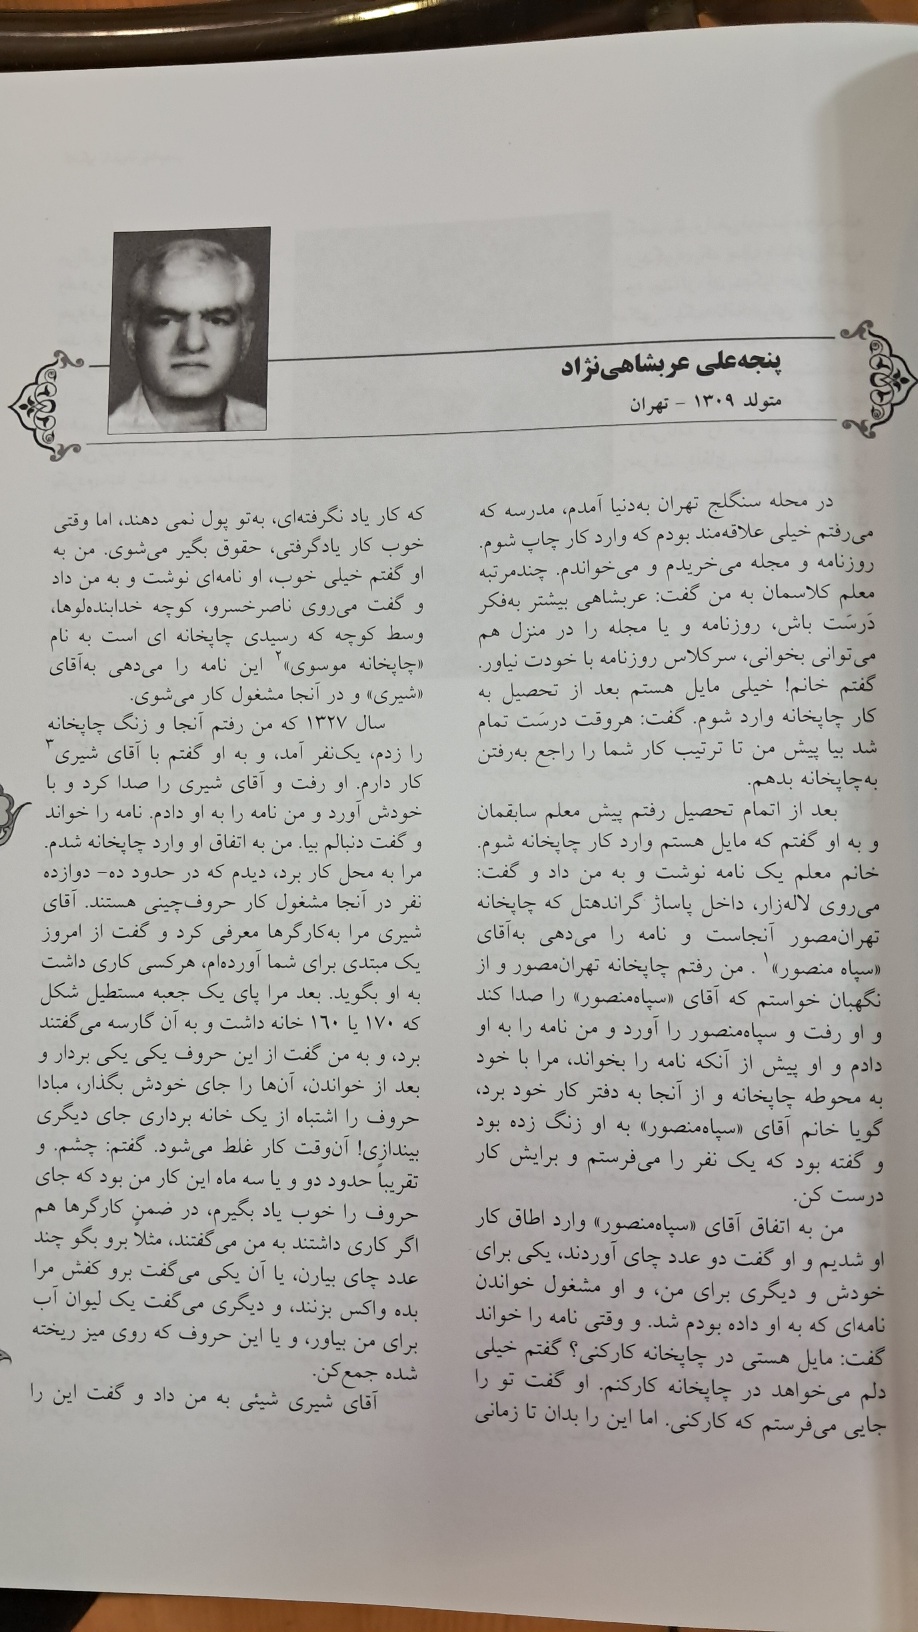 پنجه‌علی عربشاهی‌نژاد
متولد ۱۳۰۹ - تهران
در محله سنگلج تهران به‌دنیا آمدم، مدرسه که
می‌رفتم خیلی علاقه‌مند بودم که وارد کار چاپ شوم.
روزنامه و مجله می‌خریدم و می‌خواندم. چندمرتبه
معلم کلاسمان به من گفت: عربشاهی بیشتر به‌فکر
دَرسَت باش، روزنامه و یا مجله را در منزل هم
می‌توانی بخوانی، سرکلاس روزنامه با خودت نیاور.
گفتم خانم! خیلی مایل هستم بعد از تحصیل به
کار چاپخانه وارد شوم. گفت: هروقت درسَت تمام
شد بیا پیش من تا ترتیب کار شما را راجع به‌رفتن
به‌چاپخانه بدهم.
بعد از اتمام تحصیل رفتم پیش معلم سابقمان
و به او گفتم که مایل هستم وارد کار چاپخانه شوم.
خانم معلم یک نامه نوشت و به من داد و گفت:
می‌روی لاله‌زار، داخل پاساژ گراندهتل که چاپخانه
تهران‌مصور آنجاست و نامه را می‌دهی به‌آقای
«سپاه منصور»۱ . من رفتم چاپخانه تهران‌مصور و از
نگهبان خواستم که آقای «سپاه‌منصور» را صدا کند
و او رفت و سپاه‌منصور را آورد و من نامه را به او
دادم و او پیش از آنکه نامه را بخواند، مرا با خود
به محوطه چاپخانه و از آنجا به دفتر کار خود برد،
گویا خانم آقای «سپاه‌منصور» به او زنگ زده بود
و گفته بود که یک نفر را می‌فرستم و برایش کار
درست کن.
من به اتفاق آقای «سپاه‌منصور» وارد اطاق کار
او شدیم و او گفت دو عدد چای آوردند، یکی برای
خودش و دیگری برای من، و او مشغول خواندن
نامه‌ای که به او داده بودم شد. و وقتی نامه را خواند
گفت: مایل هستی در چاپخانه کارکنی؟ گفتم خیلی
دلم می‌خواهد در چاپخانه کارکنم. او گفت تو را
جایی می‌فرستم که کارکنی. اما این را بدان تا زمانی
که کار یاد نگرفته‌ای، به‌تو پول نمی دهند، اما وقتی
خوب کار یادگرفتی، حقوق بگیر می‌شوی. من به
او گفتم خیلی خوب، او نامه‌ای نوشت و به من داد
و گفت می‌روی ناصرخسرو، کوچه خدابنده‌لوها،
وسط کوچه که رسیدی چاپخانه ای است به نام
«چاپخانه موسوی»۲ این نامه را می‌دهی به‌آقای
«شیری» و در آنجا مشغول کار می‌شوی.
سال ۱۳۲۷ که من رفتم آنجا و زنگ چاپخانه
را زدم، یک‌نفر آمد، و به او گفتم با آقای شیری۳
کار دارم. او رفت و آقای شیری را صدا کرد و با
خودش آورد و من نامه را به او دادم. نامه را خواند
و گفت دنبالم بیا. من به اتفاق او وارد چاپخانه شدم.
مرا به محل کار برد، دیدم که در حدود ده- دوازده
نفر در آنجا مشغول کار حروف‌چینی هستند. آقای
شیری مرا به‌کارگرها معرفی کرد و گفت از امروز
یک مبتدی برای شما آورده‌ام، هرکسی کاری داشت
به او بگوید. بعد مرا پای یک جعبه مستطیل شکل
که ۱۷۰ یا ۱۶۰ خانه داشت و به آن گارسه می‌گفتند
برد، و به من گفت از این حروف یکی یکی بردار و
بعد از خواندن، آن‌ها را جای خودش بگذار، مبادا
حروف را اشتباه از یک خانه برداری جای دیگری
بیندازی! آن‌وقت کار غلط می‌شود. گفتم: چشم. و
تقریباً حدود دو و یا سه ماه این کار من بود که جای
حروف را خوب یاد بگیرم، در ضمنِ کارگرها هم
اگر کاری داشتند به من می‌گفتند، مثلاً برو بگو چند
عدد چای بیارن، یا آن یکی می‌گفت برو کفش مرا
بده واکس بزنند، و دیگری می‌گفت یک لیوان آب
برای من بیاور، و یا این حروف که روی میز ریخته
شده جمع‌کن.
آقای شیری شیئی به من داد و گفت این را